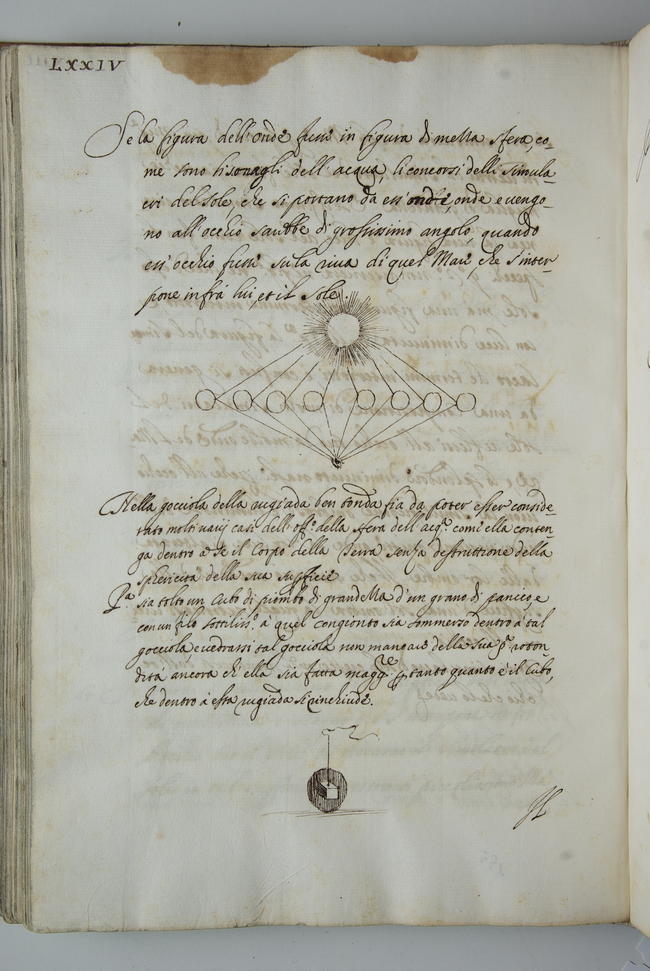 LXXIV
Se la figura dell'onde fussi in figura di meza sfera, co-
me sono li sonagli dell'acqua, li concorsi delli simula-
cri del sole, che si portano da ess'onde, onde e vengo-
no all'occhio sarebbe di grossissimo angolo, quando
ess'occhio fussi su la riva di quel Mare, che s'inter-
pone infrà lui, et il Sole.
Nella gocciola della rugiada ben tonda fia da poter esser conside-
rato molti varij casi dell'off.º della sfera dell'acq.ª com'ella conten-
ga dentro a se il corpo della Terra senza destruttione della
sphericità della sua superficie
P.ª sia tolto un cubo di piombo di grandezza d'un grano di panico, e
con un filo sottiliss.º a quel congionto sia sommerso dentro à tal
gocciola, e vedrassi tal gocciola non mancare della sua p.ª roton-
dità ancora ch'ella sia fatta magg.re tanto quanto è il cubo,
che dentro à essa rugiada si rinchiude.